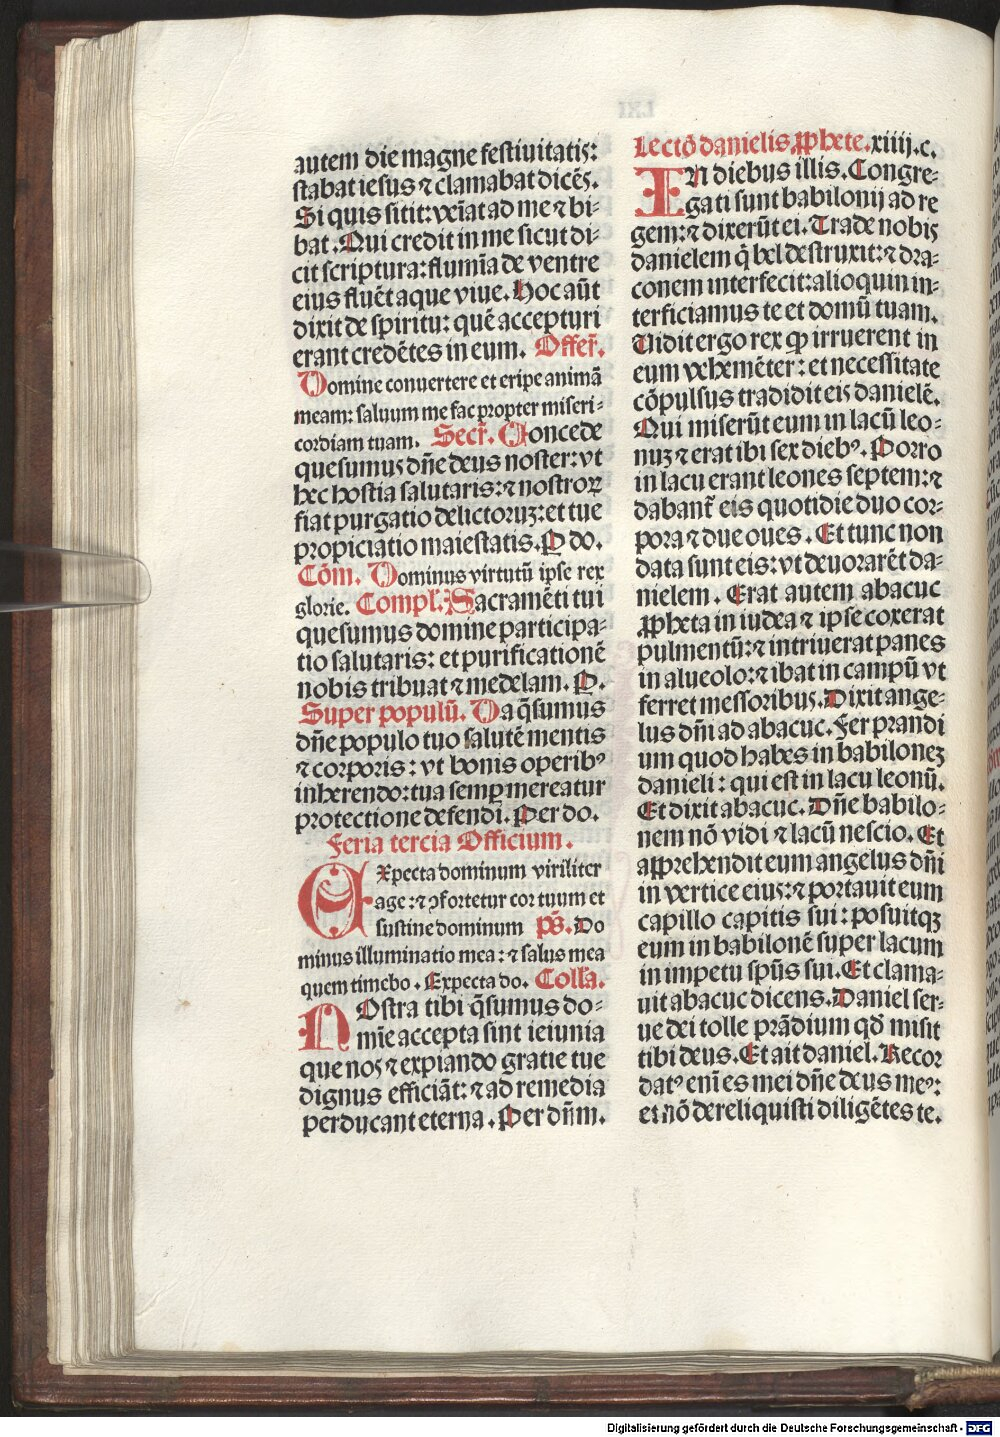 autem die magne festiuitatis:
stabat iesus ⁊ clamabat dicēs.
Si quis sitit: veniat ad me ⁊ bi⸗
bat. Qui credit in me sicut di⸗
cit scriptura: flumīa de ventre
eius fluēt aque viue. Hoc aūt
dixit de spiritu: quē accepturi
erant credētes in eum. Offer̄.
Domine conuertere et eripe animā
meam: saluum me fac propter miseri⸗
cordiam tuam. Secr̄. Concede
quesumus dn̄e deus noster: vt
hec hostia salutaris: ⁊ nostroꝝ
fiat purgatio delictoruꝫ: et tue
propiciatio maiestatis. P do.
Cōm. Dominus virtutū ipse rex
glorie. Compl̄. Sacramēti tui
quesumus domine participa⸗
tio salutaris: et purificationē
nobis tribuat ⁊ medelam. P.
Super populū. Da q̄sumus
dn̄e populo tuo salutē mentis
⁊ corporis: vt bonis operibꝰ
inherendo: tua semꝑ mereatur
protectione defendi. Per do.
Feria tercia Officium.
EXpecta dominum viriliter
age: ⁊ ꝯfortetur cor tuum et
sustine dominum ps̄. Do
minus illuminatio mea: ⁊ salus mea
quem timebo. Expecta do. Coll̄a.
NOstra tibi q̄sumus do⸗
mīe accepta sint ieiunia
que nos ⁊ expiando gratie tue
dignus efficiāt: ⁊ ad remedia
perducant eterna. Per dn̄m.
Lectō danielis ꝓphete. xiiij. c.
IN diebus illis. Congre⸗
gati sunt babilonij ad re
gem: ⁊ dixerūt ei. Trade nobis
danielem q̄ bel destruxit: ⁊ dra⸗
conem interfecit: alioquin in⸗
terficiamus te et domū tuam.
Uidit ergo rex ꝙ irruerent in
eum vehemēter: et necessitate
cōpulsus tradidit eis danielē.
Qui miserūt eum in lacū leo⸗
nuꝫ ⁊ erat ibi sex diebꝰ. Porro
in lacu erant leones septem: ⁊
dabant̄ eis quotidie duo cor⸗
pora ⁊ due oues. Et tunc non
data sunt eis: vt deuorarēt da⸗
nielem. Erat autem abacuc
ꝓpheta in iudea ⁊ ipse coxerat
pulmentū: ⁊ intriuerat panes
in alueolo: ⁊ ibat in campū vt
ferret messoribus. Dixit ange⸗
lus dn̄i ad abacuc. Fer prandi
um quod habes in babiloneꝫ
danieli: qui est in lacu leonū.
Et dixit abacuc. Dn̄e babilo⸗
nem nō vidi ⁊ lacū nescio. Et
apprehendit eum angelus dn̄i
in vertice eius: ⁊ portauit eum
capillo capitis sui: posuitqꝫ
eum in babilonē super lacum
in impetu spūs sui. Et clama⸗
uit abacuc dicens. Daniel ser⸗
ue dei tolle prādium qd̄ misit
tibi deus. Et ait daniel. Recor
datꝰ enī es mei dn̄e deus meꝰ:
et nō dereliquisti diligētes te.
Digitalisierung gefördert durch die Deutsche Forschungsgemeinschaft - DFG